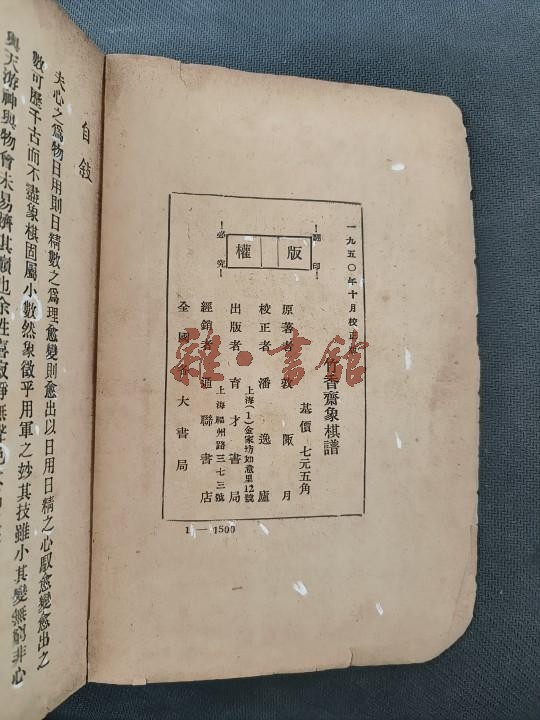 一九五〇年十月校正版
竹香齋象棋譜
基價 七元五角
版權
！翻印！
！必究！
原著者 敦陬月
校正者 潘逸廬
上海(1)金家坊如意里12號
出版者 育才書局
上海福州路三七三號
經銷者 通聯書店
全國各大書局
1—1500
雜·書館
自敘
夫心之爲物日用則日精數之爲理愈變則愈出以日用日精之心馭愈變愈出之
數可歷千古而不盡象棋固屬小數然象徵乎用軍之妙其技雖小其變無窮非心
與天游神與物會未易躋其巔也余性喜寂靜無聲